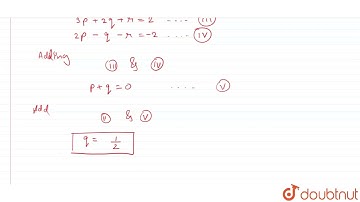 3p + 2q + r = 2 ..... III
2p - q - r = -2 ..... IV
Adding III & IV
p + q = 0 ..... V
Add II & V
q = 1/2
doubtnut